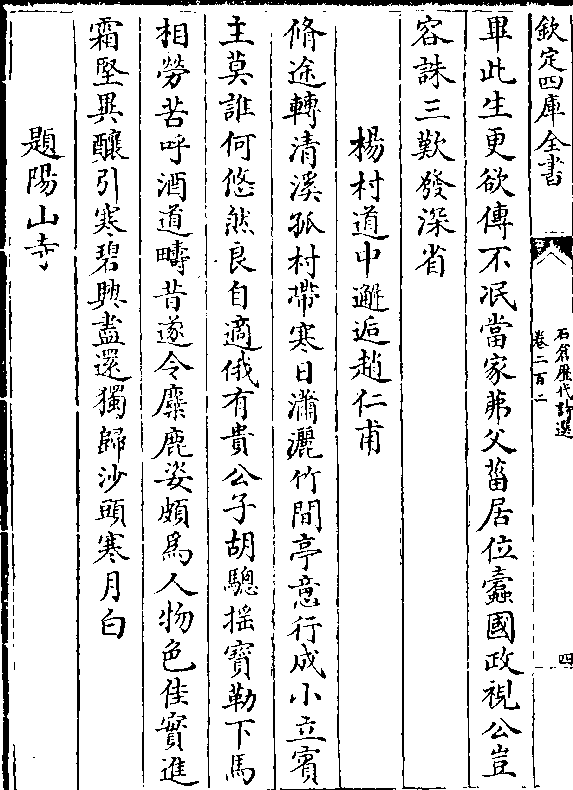 欽定四庫全書
石倉歷代詩選
卷二百二
四
畢此生更欲傳不泯當家茀父菑居位蠹國政視公豈
容誅三歎發深省
楊村道中邂逅趙仁甫
脩途轉清溪孤村帶寒日瀟灑竹間亭意行成小立賓
主莫誰何悠然良自適俄有貴公子胡驄揺寶勒下馬
相勞苦呼酒道疇昔遂令麋鹿姿頗為人物色佳實進
霜堅異釀引寒碧興盡還獨歸沙頭寒月白
題陽山寺